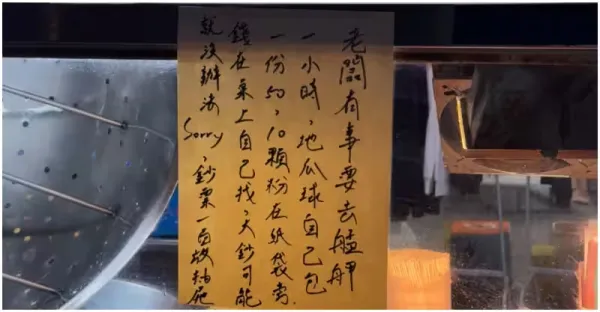 老闆有事要去艋舺
一小時,地瓜球自己包
一份50,10顆粉在紙袋旁.
錢在桌上自己找,大鈔可能
就沒辦法 Sorry,鈔票一百放抽屜